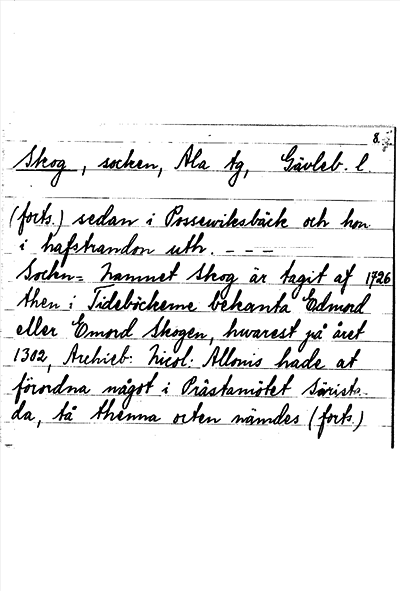 8.
Skog, socken, Ala tg, Gävleb. l.
(forts.) sedan i Possewiksbäck och hon
i hafstrandon uth. - - -
Sockn= namnet Skog är tagit af 1726
then i Tideböckerne bekanta Edmord
eller Emord Skogen, hwarest på året
1302, Archieb: Nicol: Allonis hade at
förordna något i Prästamötet
da, tå thenna orten nämdes (forts.)